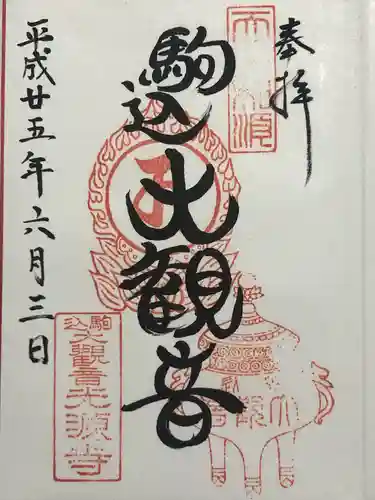 奉拝
駒込大観音
平成廿五年六月三日
駒込大觀音光源寺